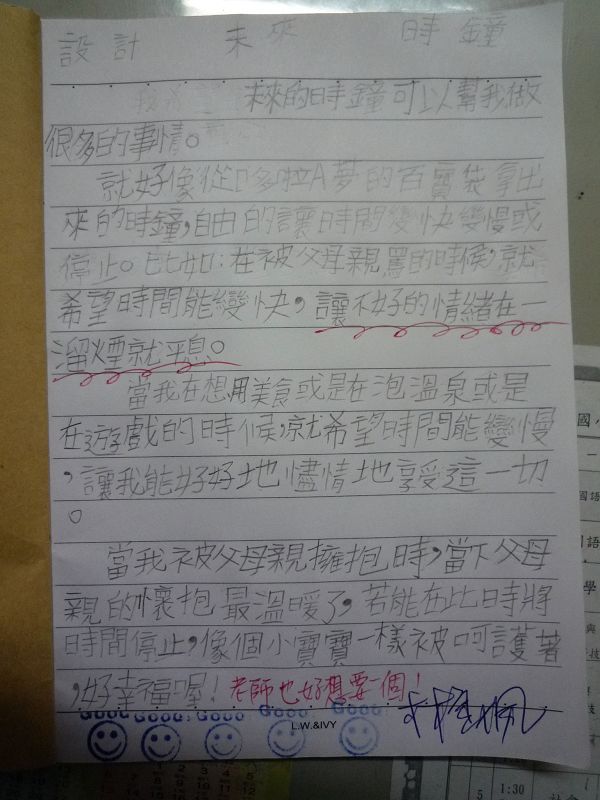 設計 未來 時鐘
未來的時鐘可以幫我做
很多的事情。
就好像從哆啦A夢的百寶袋拿出
來的時鐘,自由的讓時間變快變慢或
停止。比如:在被父母親罵的時候,就
希望時間能變快,讓不好的情緒在一
溜煙就平息。
當我在想用美食或是在泡溫泉或是
在遊戲的時候,就希望時間能變慢
,讓我能好好地儘情地享受這一切
。
當我被父母親擁抱時,當下父母
親的懷抱最溫暖了,若能在此時將
時間停止,像個小寶寶一樣被呵護著
,好幸福喔!老師也好想要一個!
GOOD! GOOD! GOOD! GOOD! GOOD!
L.W.&IVY
國小
一
國語
國語
學
與
技
5 1:30
社會